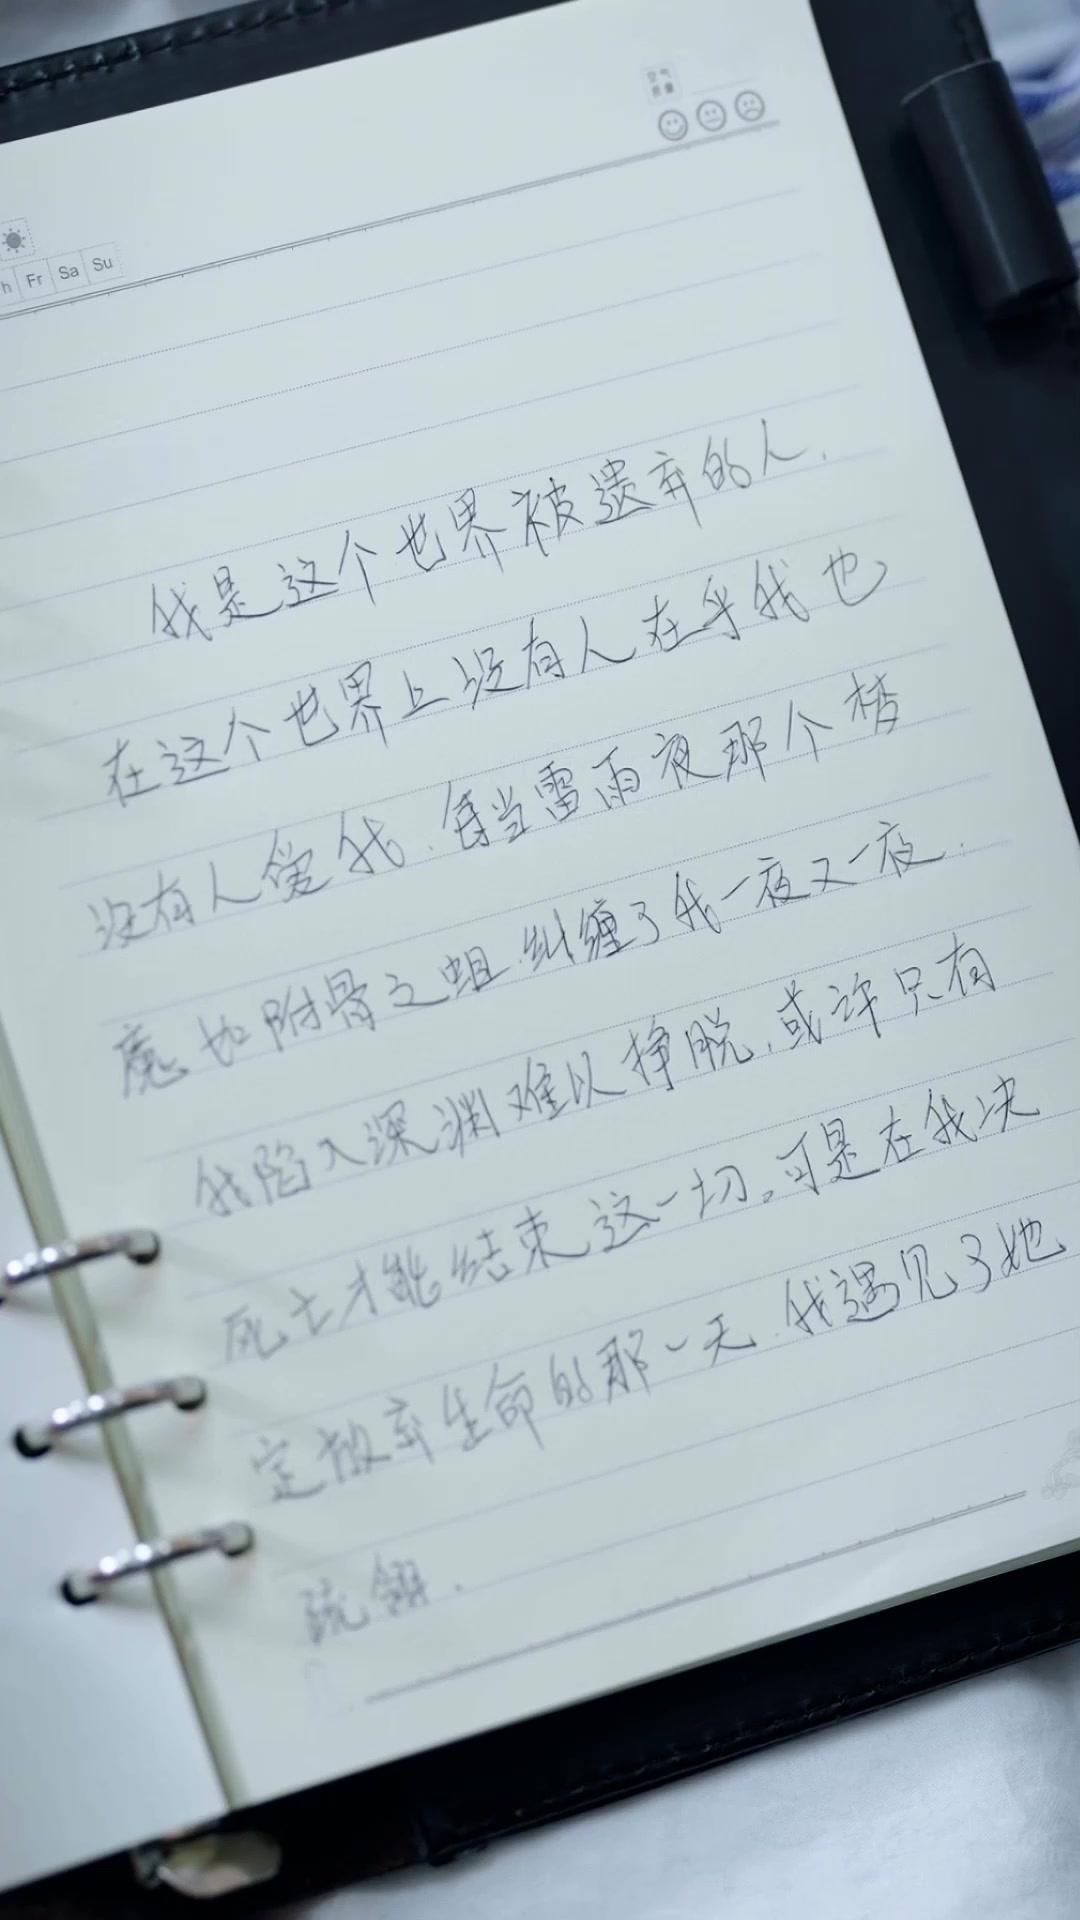 空气
质量
h Fr Sa Su
我是这个世界被遗弃的人.
在这个世界上没有人在乎我也
没有人爱我.每当雷雨夜那个梦
魇如附骨之蛆.纠缠了我一夜又一夜.
我陷入深渊难以挣脱.或许只有
死亡才能结束这一切。可是在我决
定放弃生命的那一天.我遇见了她